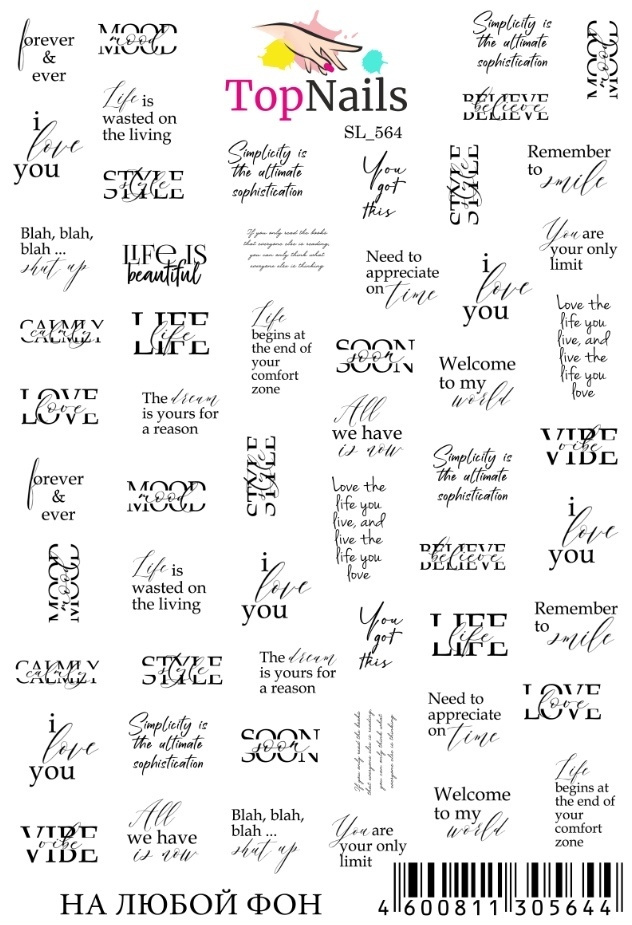 forever
&
ever
MOOD
mood
TopNails
SL_564
Simplicity is
the ultimate
sophistication
MOOD
mood
i
love
you
Life is
wasted on
the living
BELIEVE
believe
STYLE
style
Simplicity is
the ultimate
sophistication
You
got
this
STYLE
style
Remember
to smile
Blah, blah,
blah ...
shut up
LIFE IS
beautiful
If you only read the books
that everyone else is reading,
you can only think what
everyone else is thinking
Need to
appreciate
on time
i
love
you
You are
your only
limit
CALMLY
calmly
LIFE
life
Life
begins at
the end of
your
comfort
zone
SOON
soon
Welcome
to my
world
Love the
life you
live, and
live the
life you
love
LOVE
love
The dream
is yours for
a reason
All
we have
is now
VIBE
vibe
forever
&
ever
MOOD
mood
STYLE
style
Love the
life you
live, and
live the
life you
love
Simplicity is
the ultimate
sophistication
i
love
you
MOOD
mood
Life is
wasted on
the living
i
love
you
BELIEVE
believe
You
got
this
LIFE
life
Remember
to smile
CALMLY
calmly
STYLE
style
The dream
is yours for
a reason
Need to
appreciate
on time
LOVE
love
i
love
you
Simplicity is
the ultimate
sophistication
SOON
soon
If you only read the books
that everyone else is reading,
you can only think what
everyone else is thinking
Welcome
to my
world
Life
begins at
the end of
your
comfort
zone
VIBE
vibe
All
we have
is now
Blah, blah,
blah ...
shut up
You are
your only
limit
НА ЛЮБОЙ ФОН
4 600811 305644